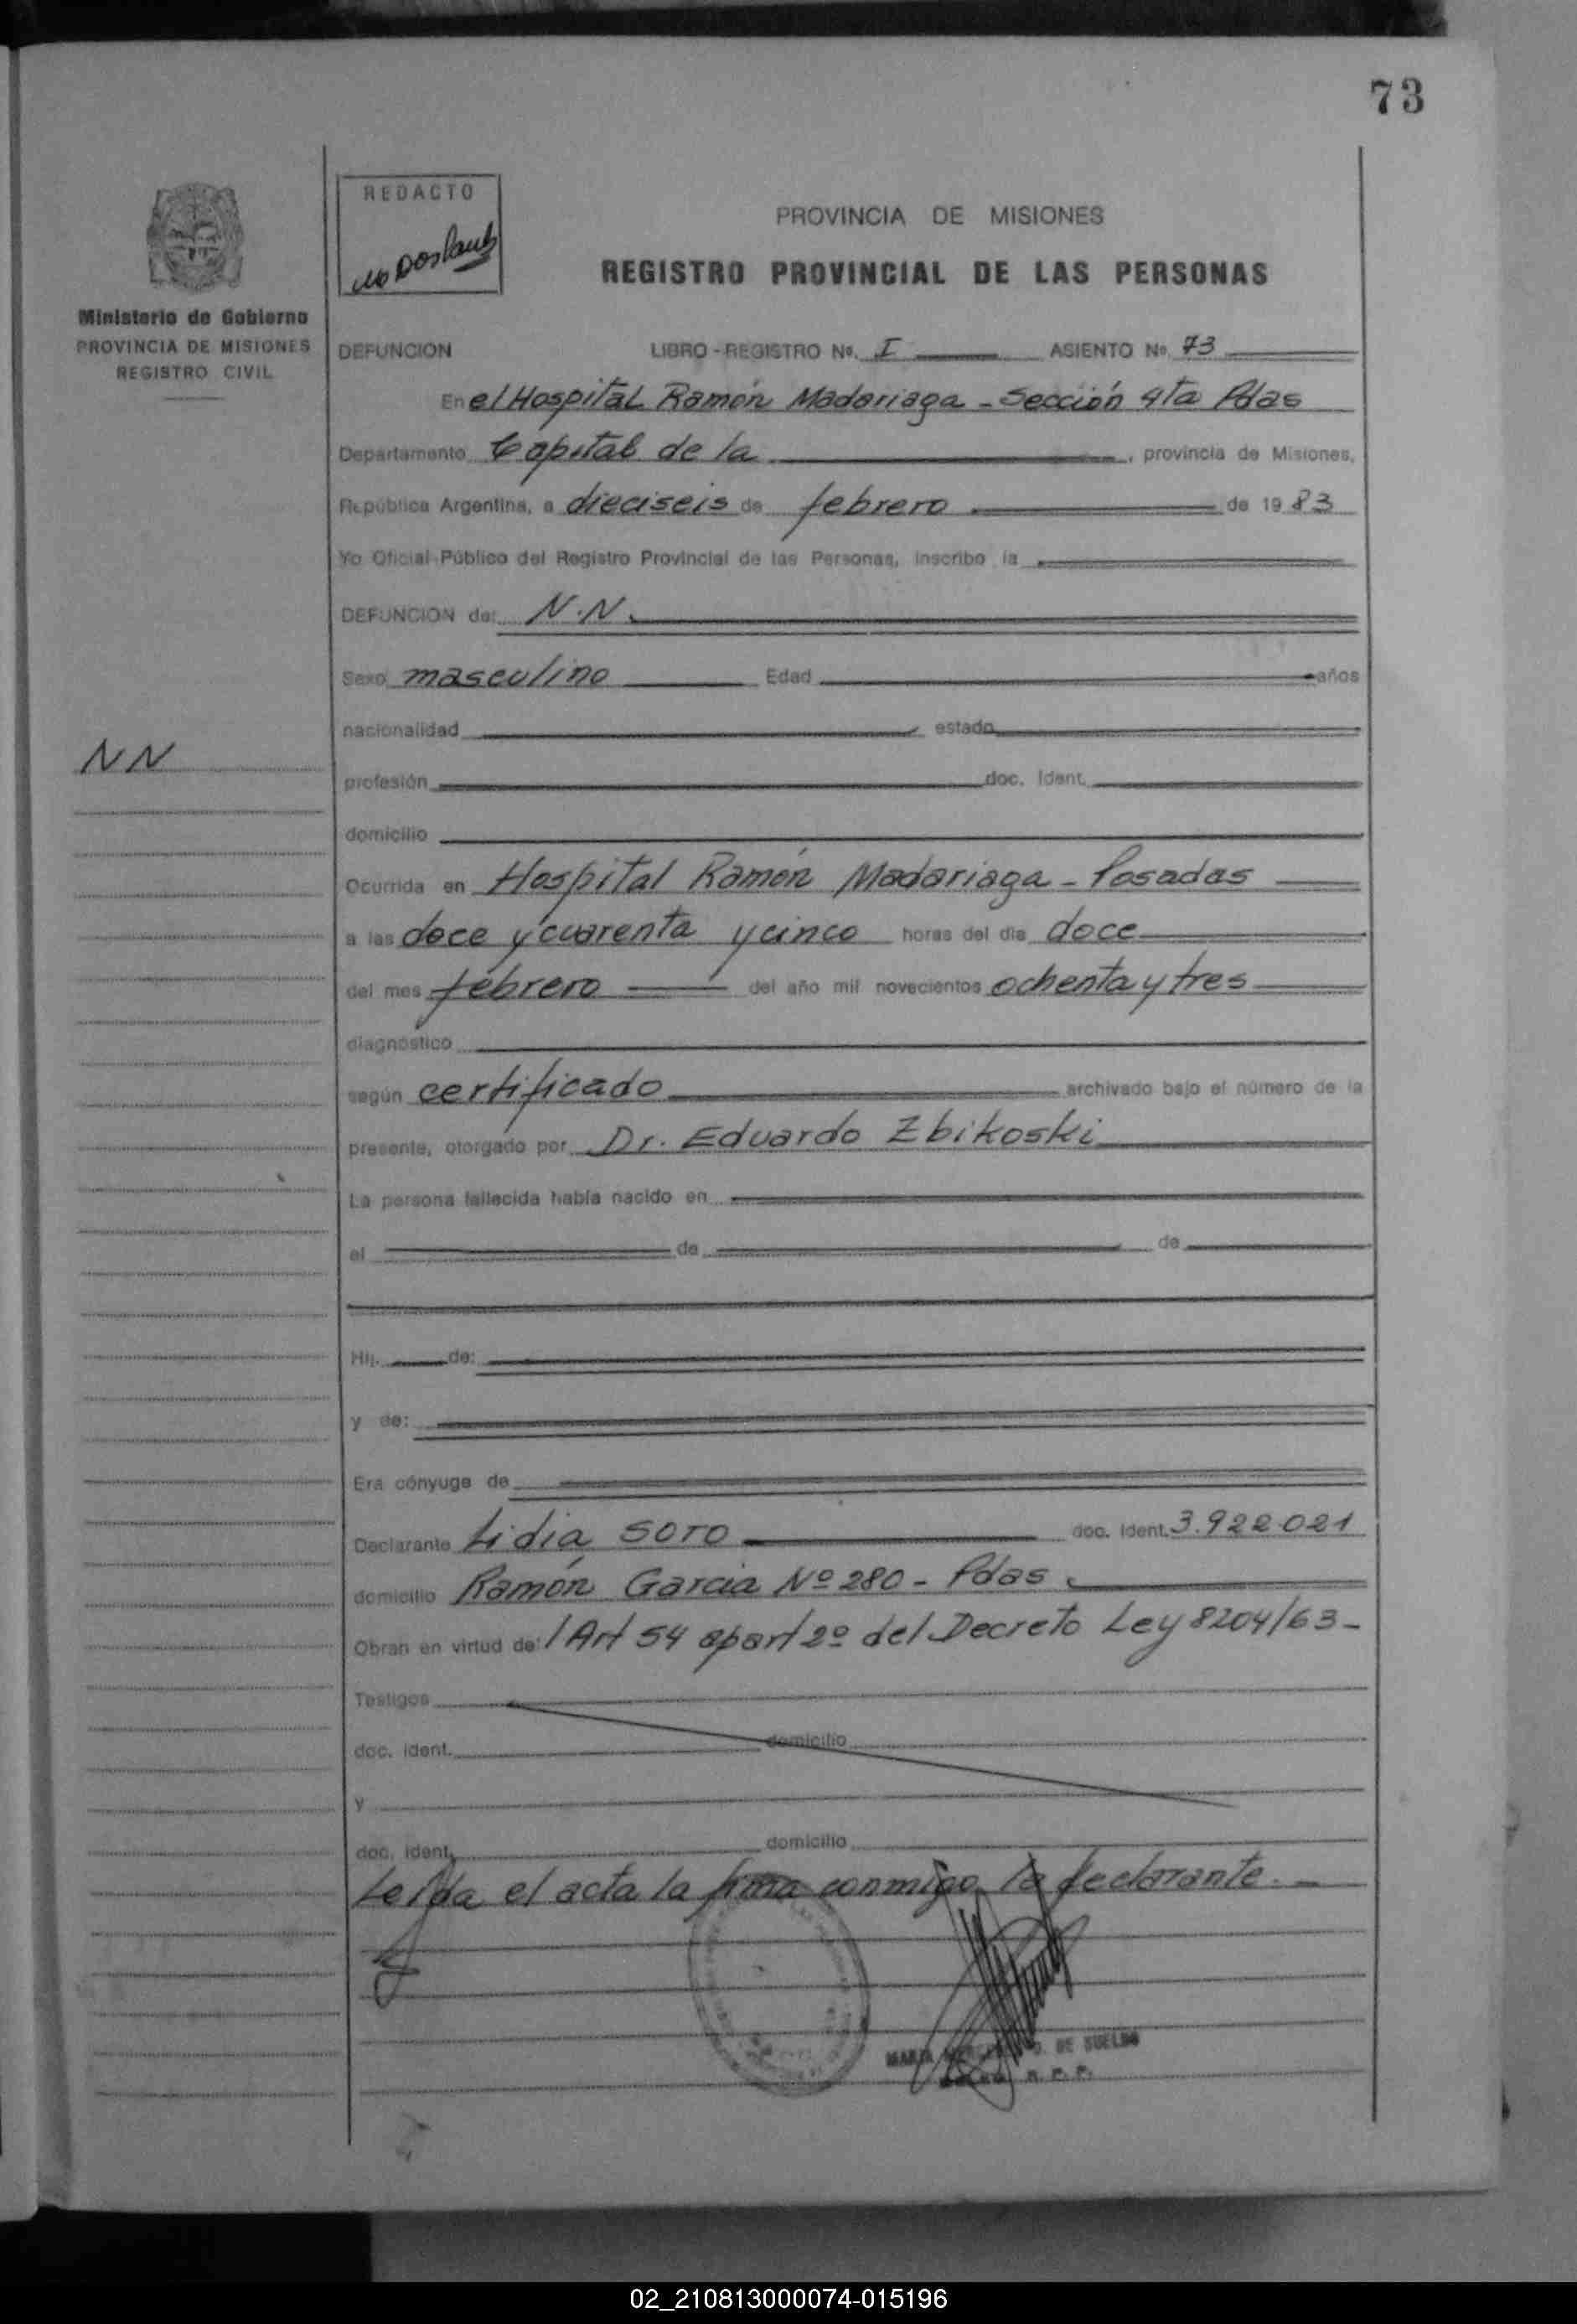 73
REDACTO
PROVINCIA DE MISIONES
REGISTRO PROVINCIAL DE LAS PERSONAS
Ministerio de Gobierno
PROVINCIA DE MISIONES
REGISTRO CIVIL
DEFUNCION LIBRO-REGISTRO Nº. I ASIENTO Nº 73
En el Hospital Ramón Madariaga - Sección 4ta Pdas
Departamento Capital de la , provincia de Misiones,
República Argentina, a dieciseis de febrero de 1983
Yo Oficial Público del Registro Provincial de las Personas, inscribo la
DEFUNCION de: N.N.
Sexo masculino Edad años
nacionalidad estado
NN
profesión doc. Ident.
domicilio
Ocurrida en Hospital Ramón Madariaga - Posadas
a las doce y cuarenta y cinco horas del día doce
del mes febrero del año mil novecientos ochenta y tres
diagnóstico
según certificado archivado bajo el número de la
presente, otorgado por Dr. Eduardo Zbikoski
La persona fallecida había nacido en
el de de
Hij. de:
y de:
Era cónyuge de
Declarante Lidia Soto doc. Ident. 3.922.021
domicilio Ramón Garcia Nº 280 - Pdas
Obran en virtud de: l Art 54 apart 2º del Decreto Ley 8204/63-
Testigos
doc. ident. domicilio
y
doc. ident. domicilio
Leída el acta la firma conmigo la declarante.-
MARIA DE SUELDO
R. P. P.
02_210813000074-015196